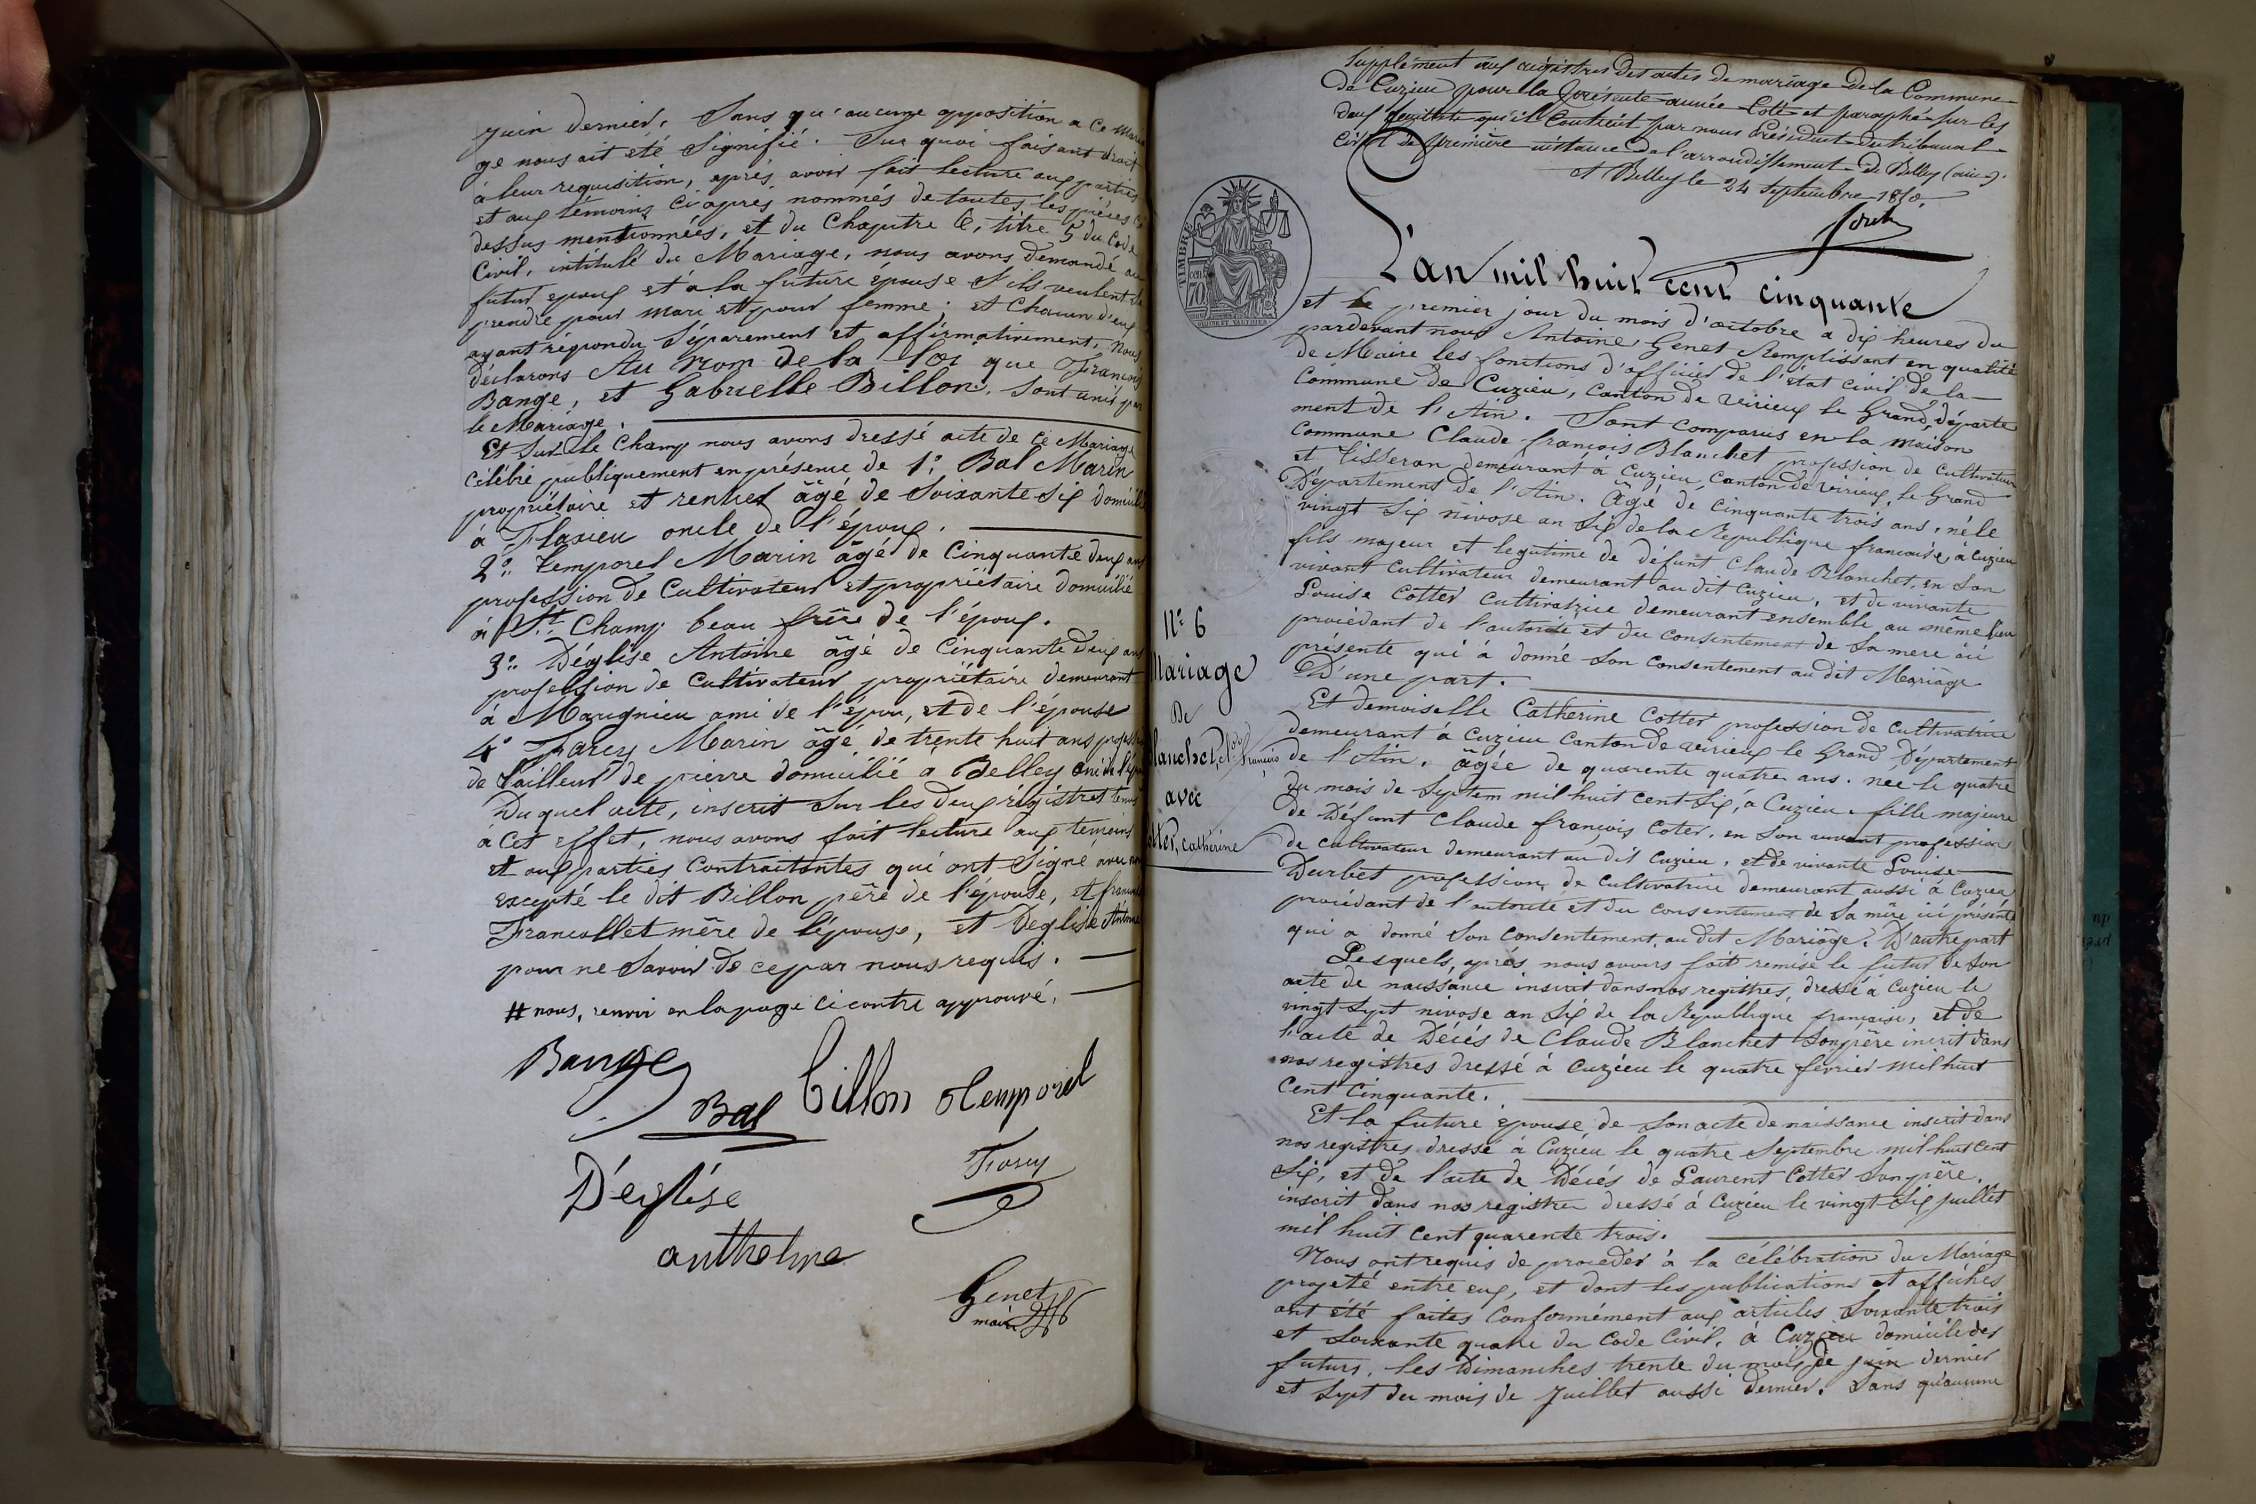 juin dernier. Sans qu'aucune opposition a ce maria
ge nous ait été signifié. Sur quoi faisant droit
à leur requisition, après avoir fait lecture aux parties
et aux témoins ci après nommés de toutes les pièces ci
dessus mentionnées, et du Chapitre 6, titre 5 du Code
Civil, intitulé du Mariage, nous avons demandé au
futur epoux et à la future épouse s'ils veulent se
prendre pour mari et pour femme; et chacun d'eux
ayant repondu séparement et affirmativement, nous
déclarons Au nom de la loi que François
Bange, et Gabrielle Billon, sont unis par
le Mariage.
Et sur le champ nous avons dressé acte de ce Mariage
célébré publiquement en présence de 1º. Bal Marin
propriétaire et rentier âgé de soixante six domicilié
à Flaxieu oncle de l'époux.
2º. Temporel Marin âgé de cinquante deux ans
profession de cultivateur et propriétaire domicilié
à St. Champ beau frère de l'époux.
3º. Déglise Antoine âgé de cinquante deux ans
profession de cultivateur propriétaire demeurant
à Marignieu ami de l'époux, et de l'épouse
4º Farcy Marin âgé de trente huit ans profession
de tailleur de pierre domicilié a Belley ami de l'époux
Du quel acte, inscrit sur les deux régistres tenus
à cet effet, nous avons fait lecture aux témoins
et aux parties contractantes qui ont signé avec nous
excepté le dit Billon père de l'épouse, et
Francollet mère de l'épouse, et Deglise Antoine
pour ne savoir de ce par nous requis.
# nous, renvoi en la page ci contre approuvé.
Bange
Bal Billon Temporel
D'églize Farcy
anthelme
Genet
maire
Supplément aux registres des actes de mariage de la Commune
de Cuzieu pour la présente année Coté et paraphé sur les
deux feuillets qu'il contient par nous Président du tribunal
civil de première instance de l'arrondissement de Belley (ain).
à Belley le 24 septembre 1850.
TIMBRE
70
L'an mil huit cent cinquante
et le premier jour du mois d'octobre a dix heures du
pardevant nous Antoine Genet Remplissant en qualité
de Maire les fonctions d'officier de l'état civil de la
Commune de Cuzieu, canton de Virieux le Grand, départe
ment de l'Ain. Sont comparus en la maison
commune Claude françois Blanchet profession de cultivateur
et tisseran demeurant à Cuzieu, canton de Virieux le Grand
Département de l'Ain. Âgé de cinquante trois ans, né le
vingt six nivose an six de la République française, à Cuzieu
fils majeur et legitime de défunt Claude Blanchet, en son
vivant cultivateur demeurant au dit Cuzieu, et de vivante
Louise Cotter cultivatrice demeurant ensemble au même lieu
procédant de l'autorité et du consentement de sa mère ici
présente qui a donné son consentement au dit Mariage
D'une part.
Et demoiselle Catherine Cotter profession de cultivatrice
demeurant à Cuzieu Canton de Virieux le Grand, Département
de l'Ain. âgée de quarente quatre ans. née le quatre
du mois de Septem mil huit cent six, à Cuzieu. fille majeure
de Défunt Claude françois Coter, en son vivant profession
de cultivateur demeurant au dit Cuzieu, et de vivante Louise
Durbet profession de cultivatrice demeurant aussi à Cuzieu
procédant de l'autorité et du consentement de sa mère ici présente
qui a donné son consentement au dit Mariage. D'autre part
Lesquels, après nous avoirs fait remise le futur de son
acte de naissance inscrit dans nos registres, dressé à Cuzieu le
vingt sept nivose an six de la République française, et de
l'acte de Décés de Claude Blanchet son père inscrit dans
nos registres dressé à Cuzieu le quatre février mil huit
cent cinquante.
Et la future épouse de son acte de naissance inscrit dans
nos registres dressé à Cuzieu le quatre septembre mil huit cent
six, et de l'acte de Décés de Laurent Cotter son père,
inscrit dans nos registres dressé à Cuzieu le vingt six juillet
mil huit cent quarente trois.
Nous ont requis de proceder à la célébration du Mariage
projeté entre eux, et dont les publications et affiches
ont été faites conformément aux articles soixante trois
et soixante quatre du Code Civil, à Cuzieu domicile des
futurs, les Dimanches trente du mois de juin dernier
et sept du mois de Juillet aussi dernier. Sans qu'aucune
Nº 6
Mariage
De
Blanchet, Cl. François
avec
Cotter, Catherine